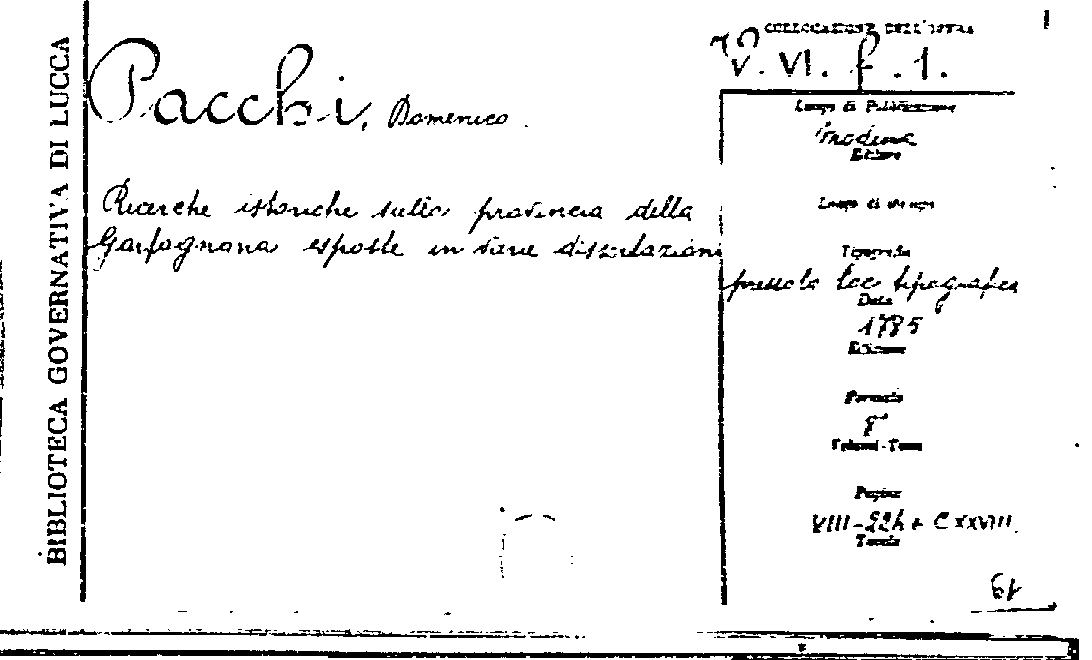 BIBLIOTECA GOVERNATIVA DI LUCCA
COLLOCAZIONE DELL'OPERA
V. VI. f. 1.
Pacchi, Domenico.
Ricerche istoriche sulla provincia della
Garfagnana esposte in varie dissertazioni
Luogo di Pubblicazione
Modena
Editore
Luogo di stampa
Tipografia
presso la Soc. tipografica
Data
1785
Edizione
Formato
8°
Volumi-Tomi
Pagine
VIII-224 + CXXVIII
Tavole